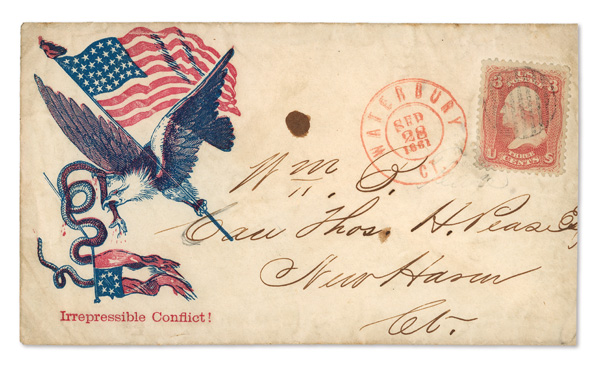 Irrepressible Conflict!
WATERBURY
SEP
28
1861
CT.
3 3
U.S.
POSTAGE
THREE
U CENTS S
Wm. P.
Care Thos. H. Pease Esq
New Haven
Ct.